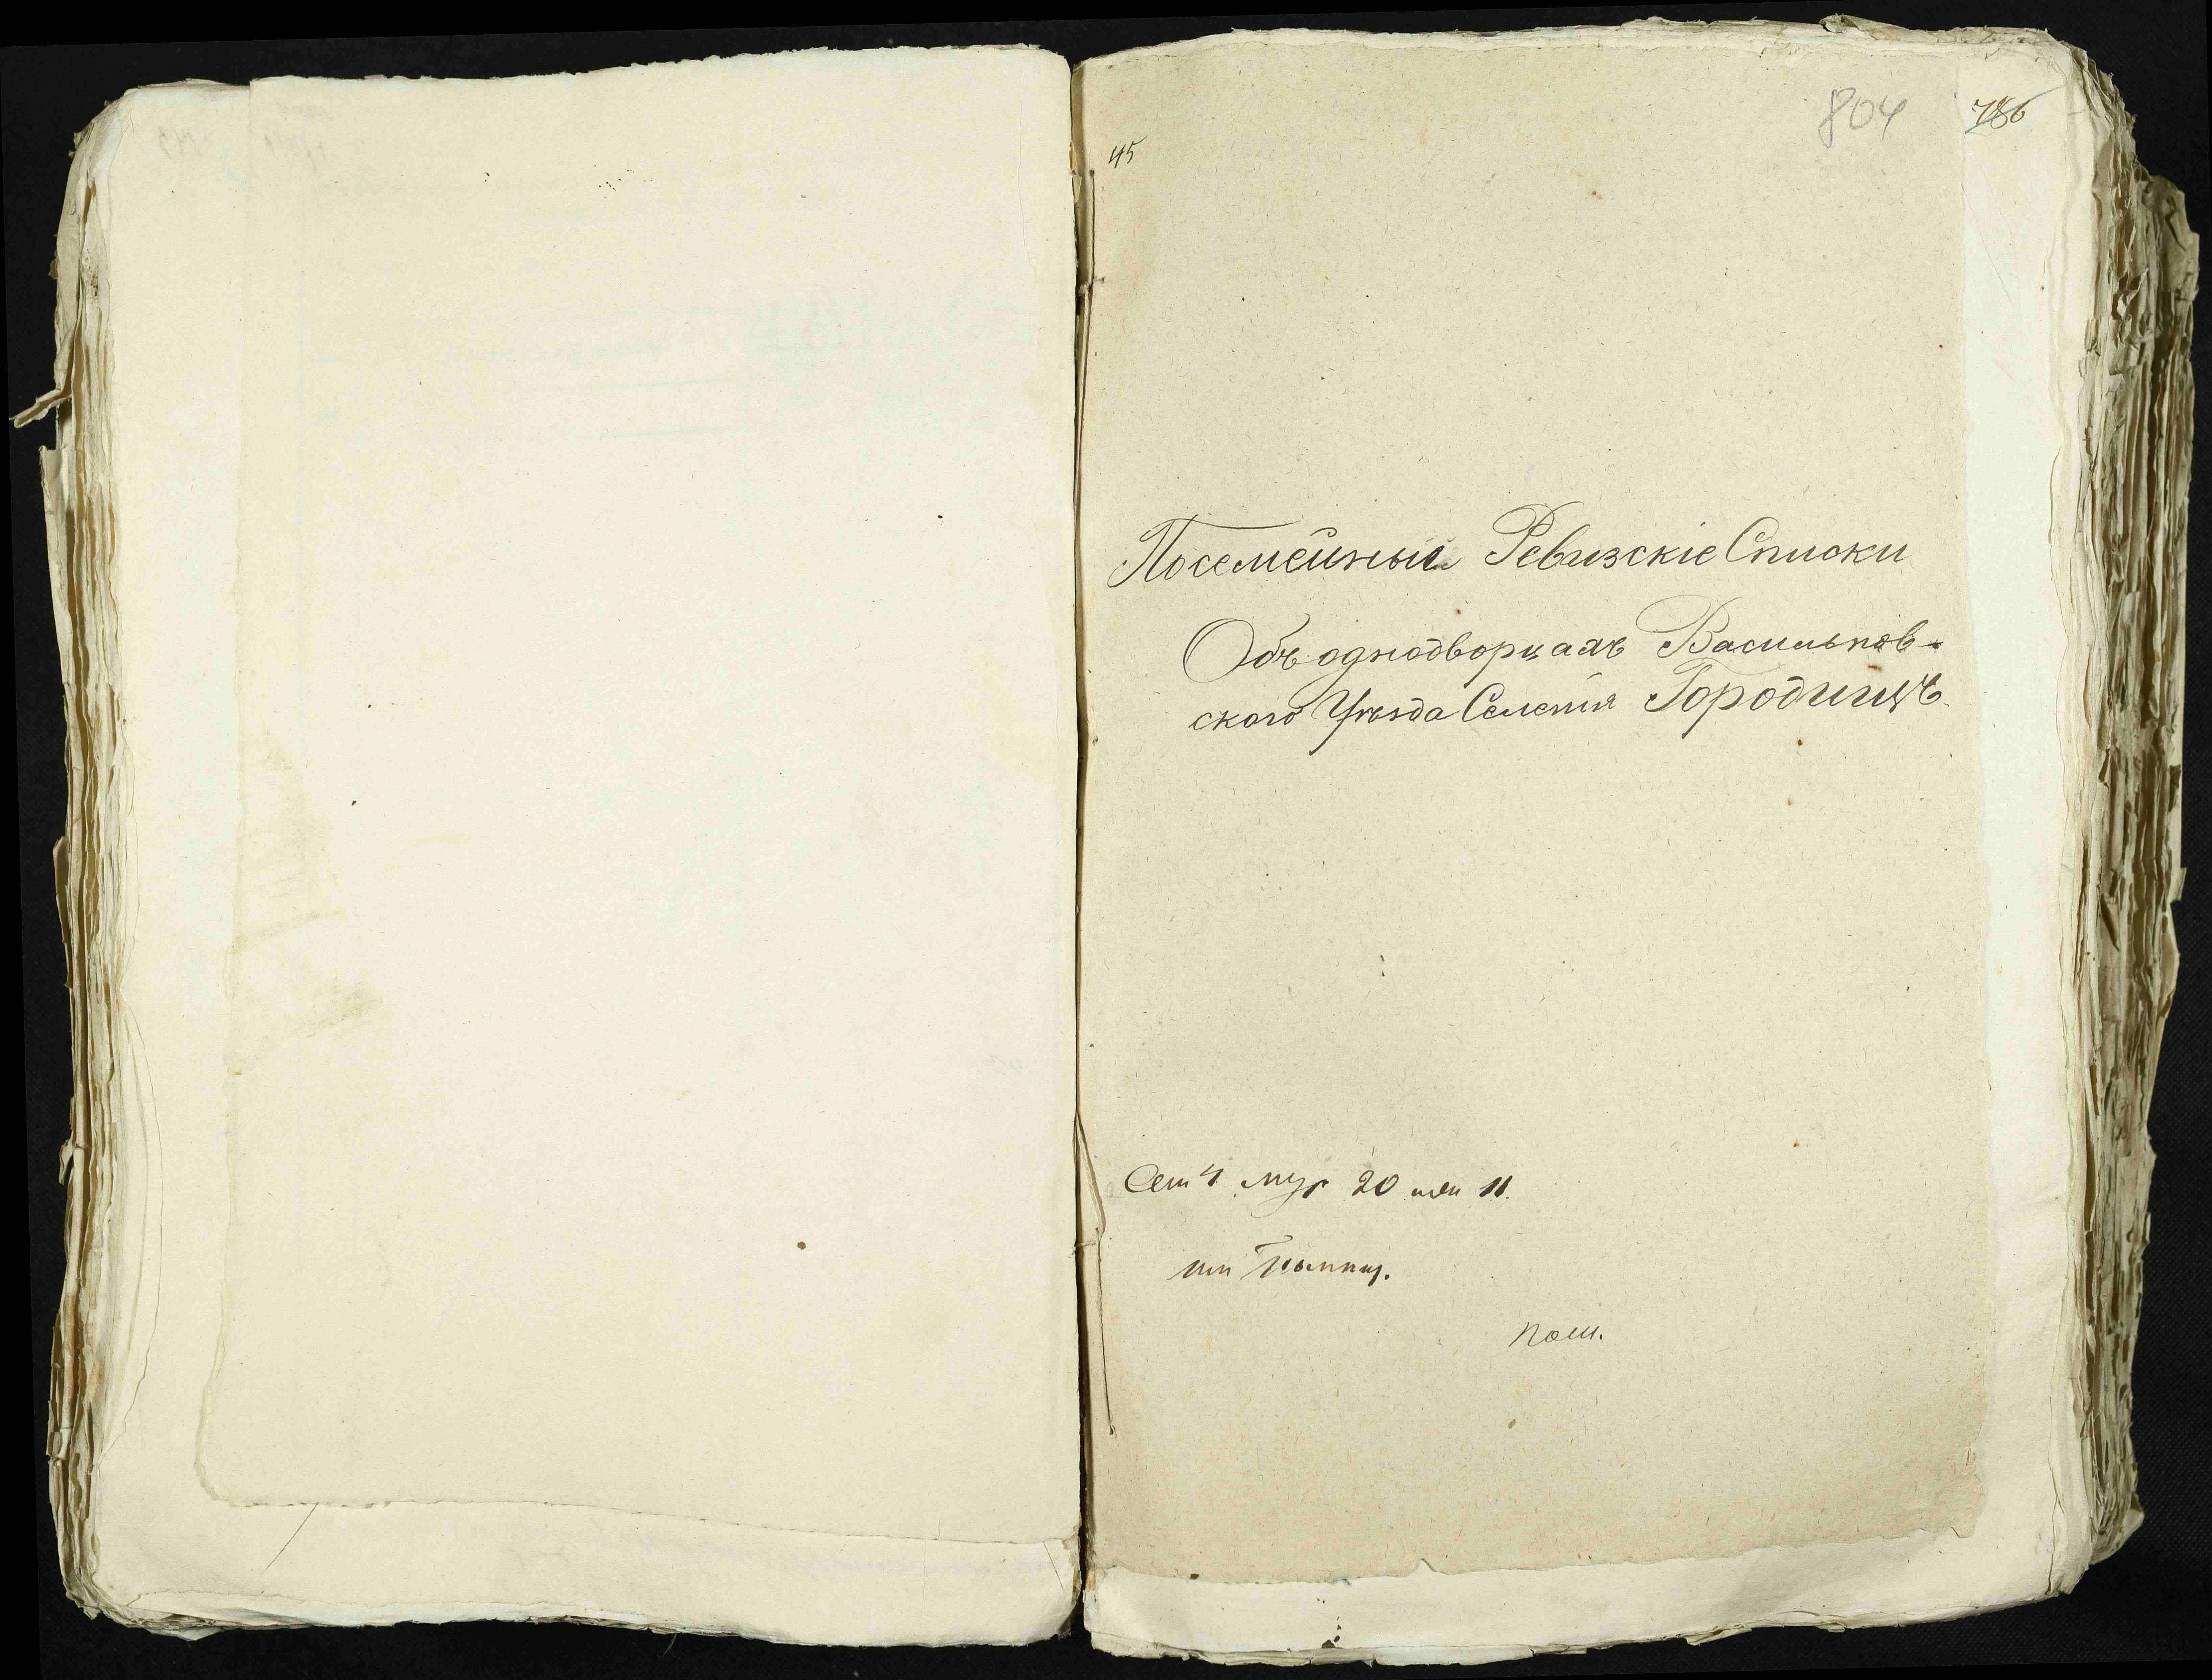 45
804
786
Посемейный Ревизскіе Списки
Объ однодворцахъ Васильков-
скаго Уѣзда Селенія Городищъ
Сем 4 муж 20 жен 11.
пош.